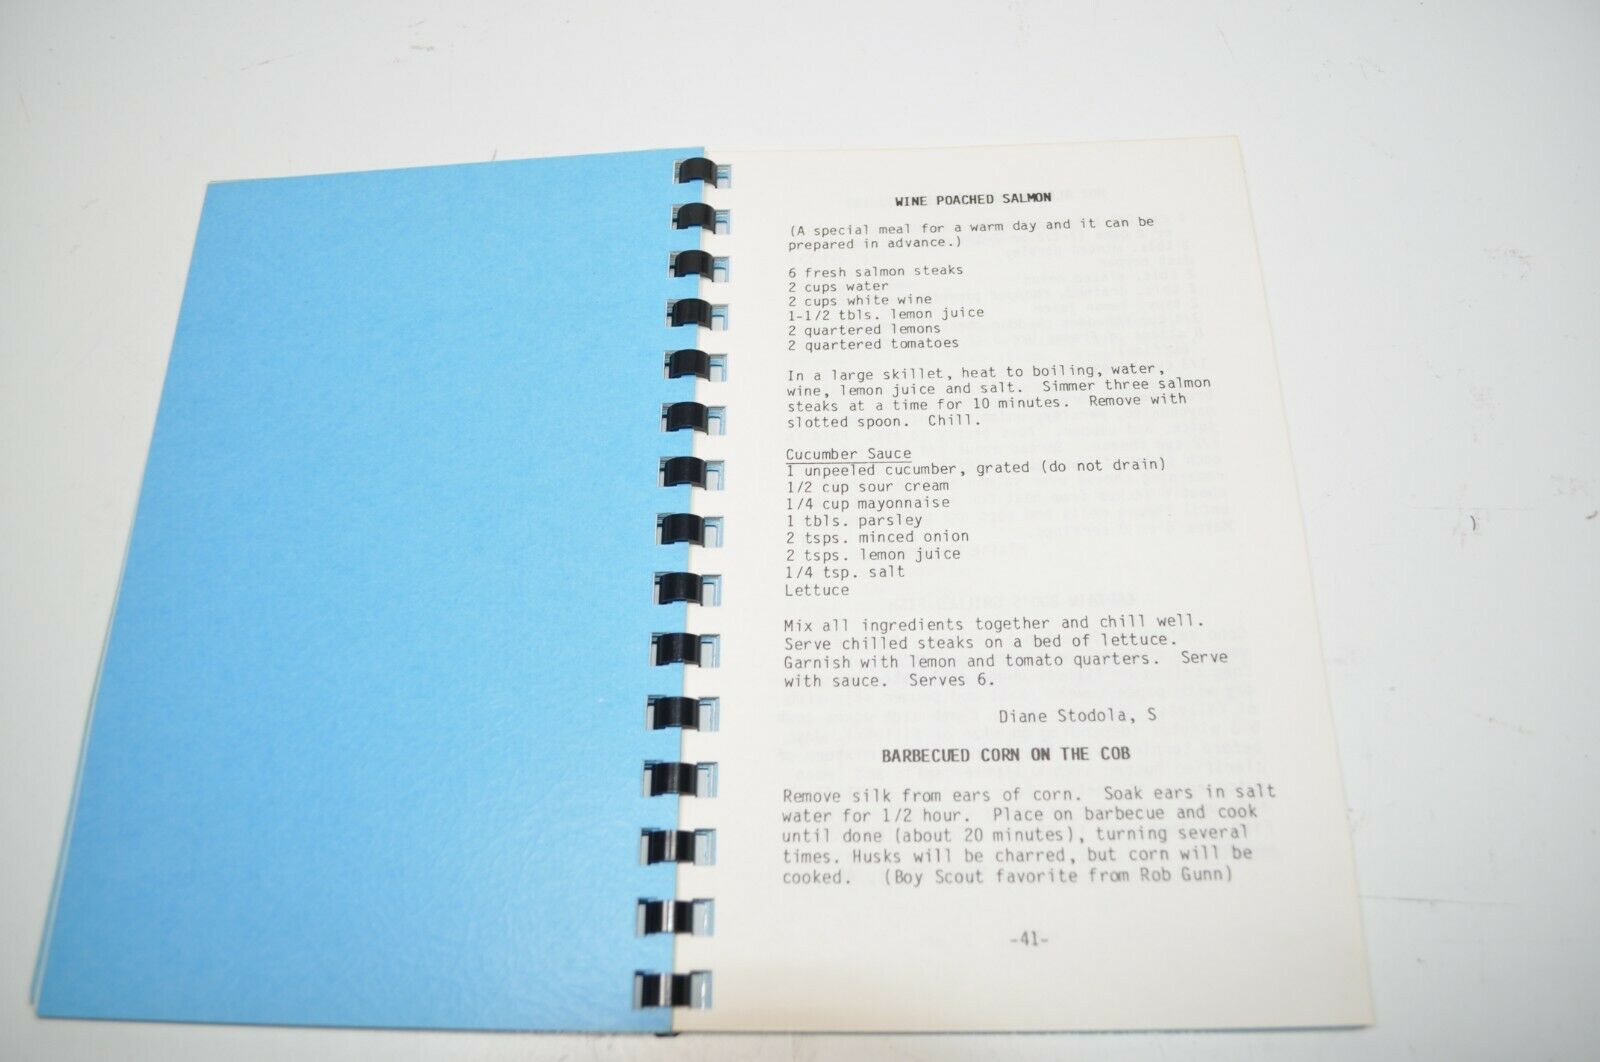 WINE POACHED SALMON
(A special meal for a warm day and it can be
prepared in advance.)
6 fresh salmon steaks
2 cups water
2 cups white wine
1-1/2 tbls. lemon juice
2 quartered lemons
2 quartered tomatoes
In a large skillet, heat to boiling, water,
wine, lemon juice and salt. Simmer three salmon
steaks at a time for 10 minutes. Remove with
slotted spoon. Chill.
Cucumber Sauce
1 unpeeled cucumber, grated (do not drain)
1/2 cup sour cream
1/4 cup mayonnaise
1 tbls. parsley
2 tsps. minced onion
2 tsps. lemon juice
1/4 tsp. salt
Lettuce
Mix all ingredients together and chill well.
Serve chilled steaks on a bed of lettuce.
Garnish with lemon and tomato quarters. Serve
with sauce. Serves 6.
Diane Stodola, S
BARBECUED CORN ON THE COB
Remove silk from ears of corn. Soak ears in salt
water for 1/2 hour. Place on barbecue and cook
until done (about 20 minutes), turning several
times. Husks will be charred, but corn will be
cooked. (Boy Scout favorite from Rob Gunn)
-41-